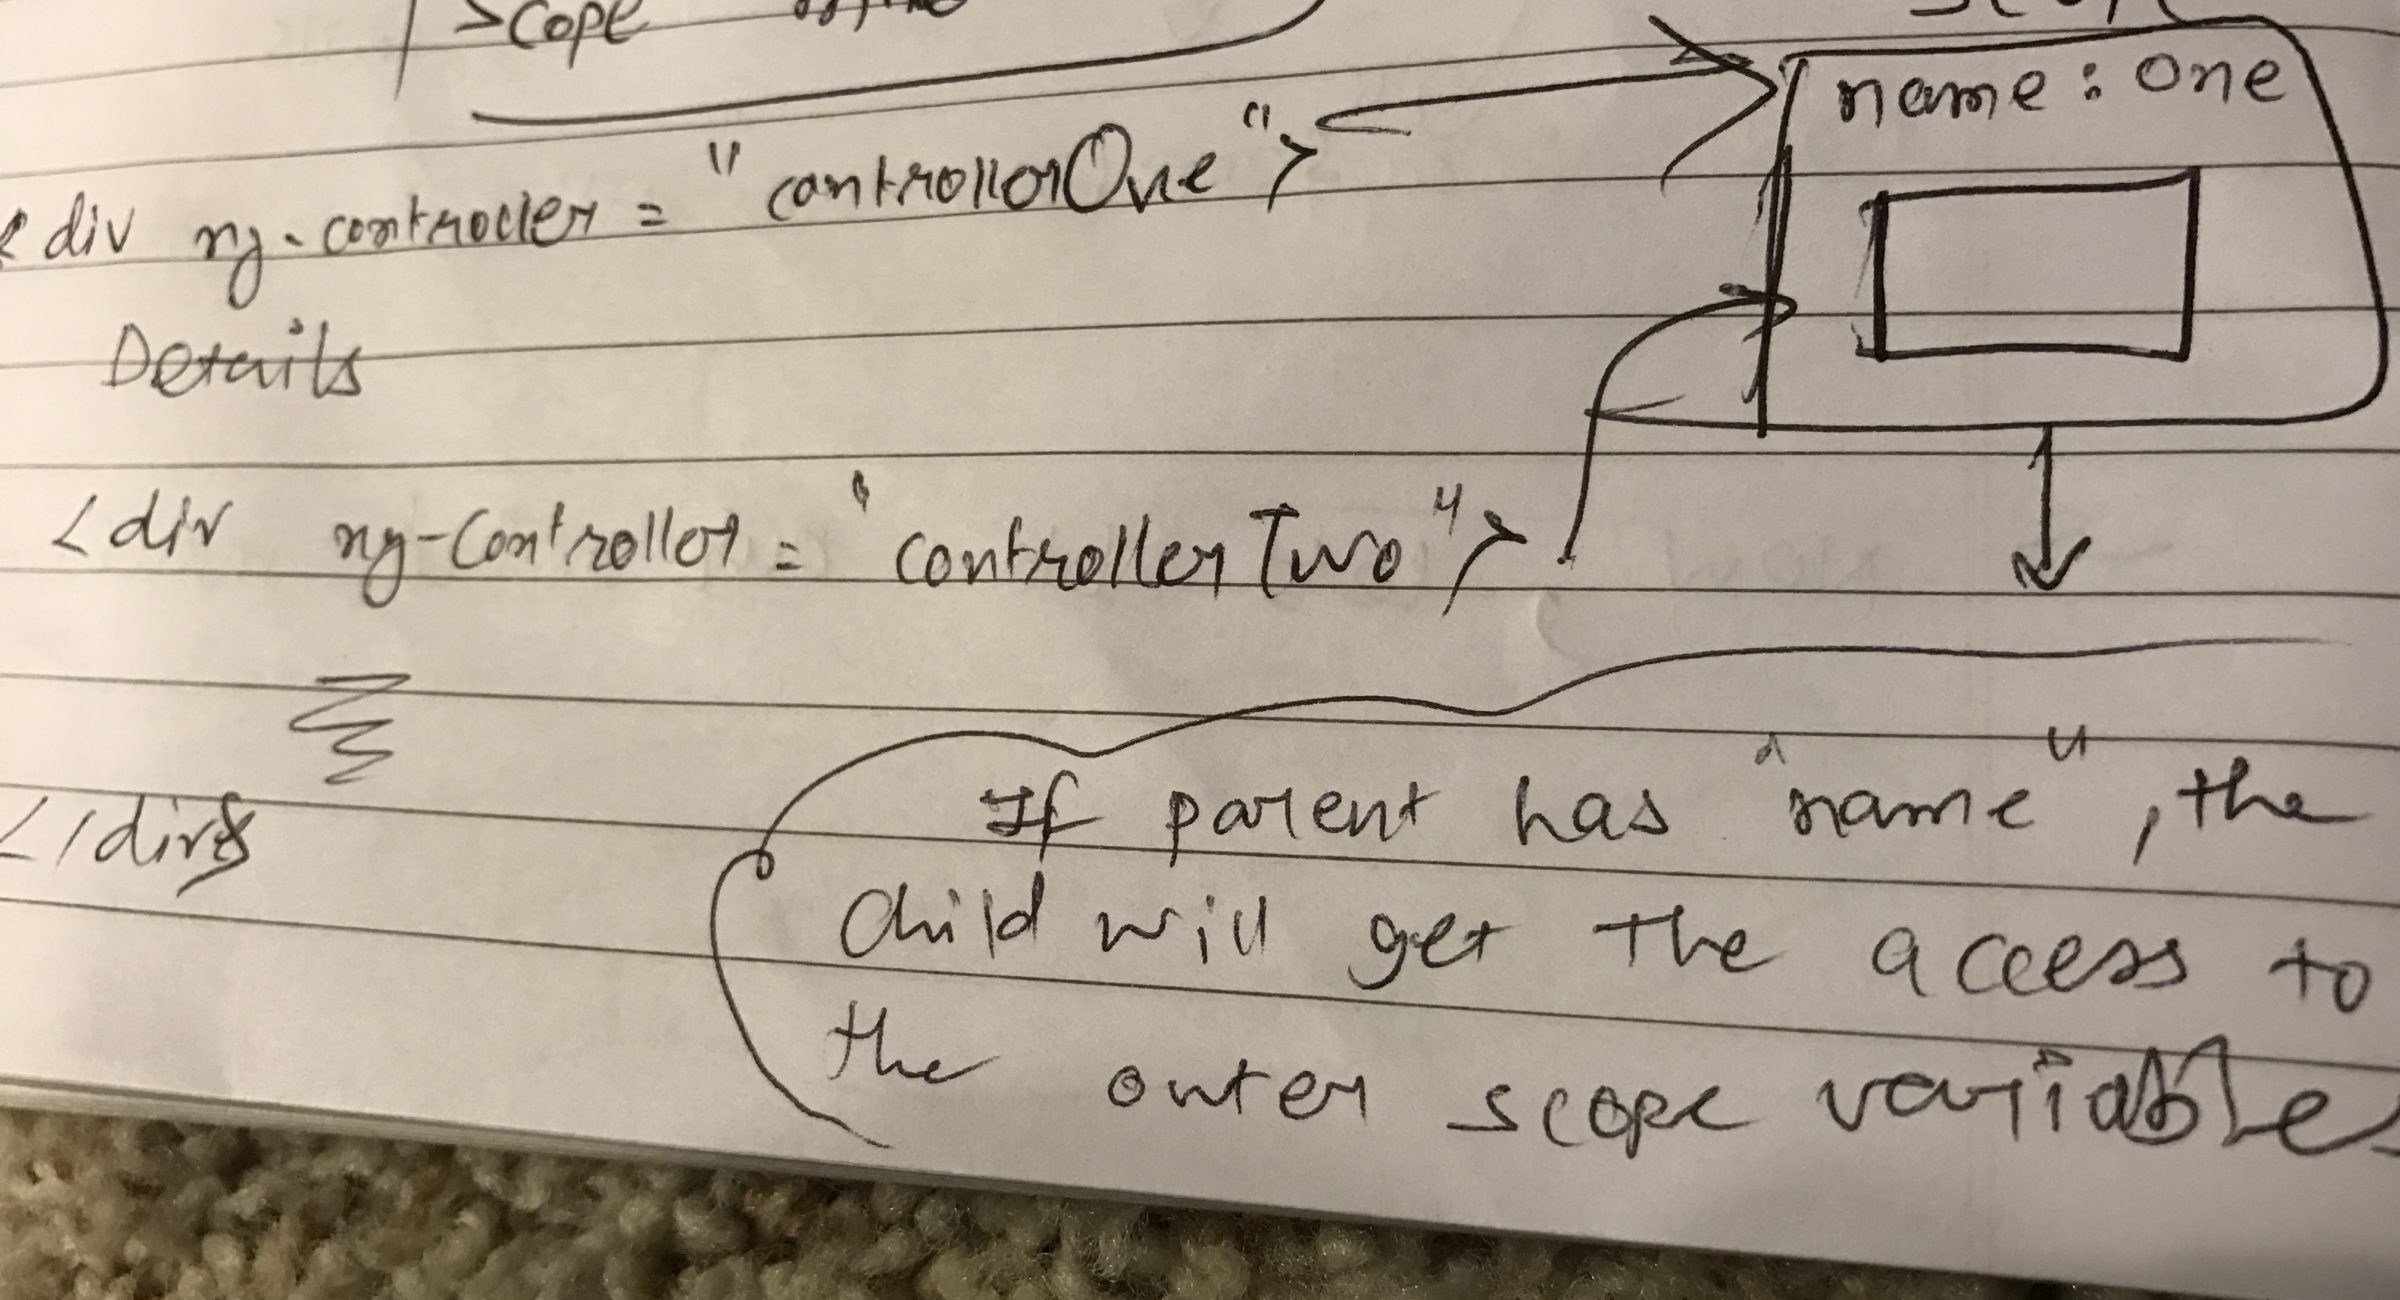 scope
name : one
<div ng-controller = "controllerOne">
Details
<div ng-controller = "controllerTwo">
</div>
If parent has "name", the
child will get the access to
the outer scope variables